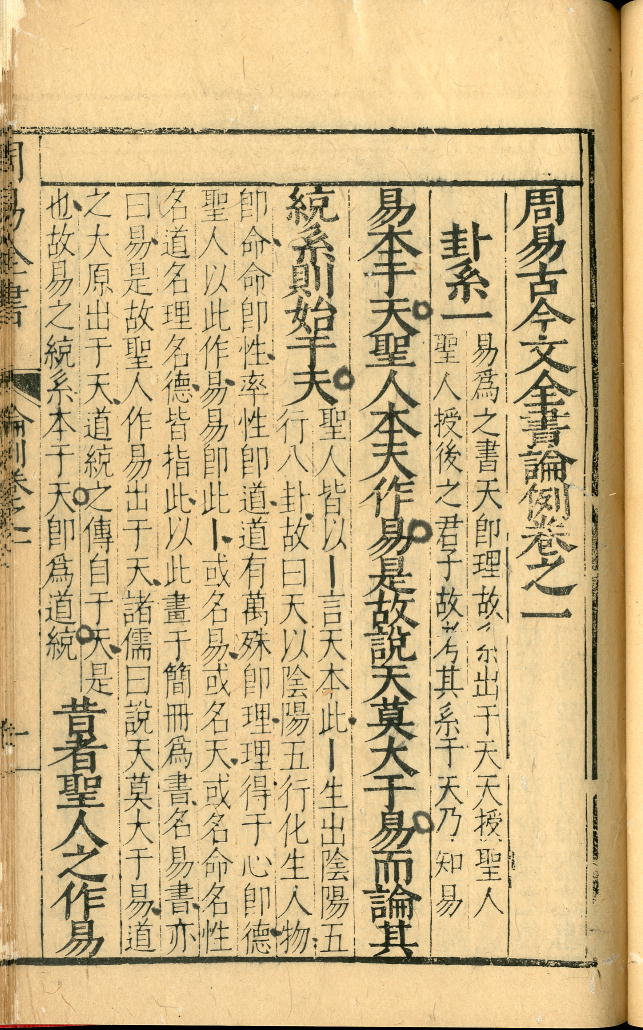 周易古今文全書論例卷之一
卦系一
易爲之書天卽理故系出于天天授聖人
聖人授後之君子故考其系于天乃知易
易本于天聖人本天作易是故說天莫大于易而論其
統系則始于天
聖人皆以丨言天本此丨生出陰陽五
行八卦故曰天以陰陽五行化生人物
卽命命卽性率性卽道道有萬殊卽理理得于心卽德
聖人以此作易易卽此丨或名易或名天或名命名性
名道名理名德皆指此以此畫于簡冊爲書名易書亦
曰易是故聖人作易出于天諸儒曰說天莫大于易道
之大原出于天道統之傳自于天是
也故易之統系本于天卽爲道統
昔者聖人之作易